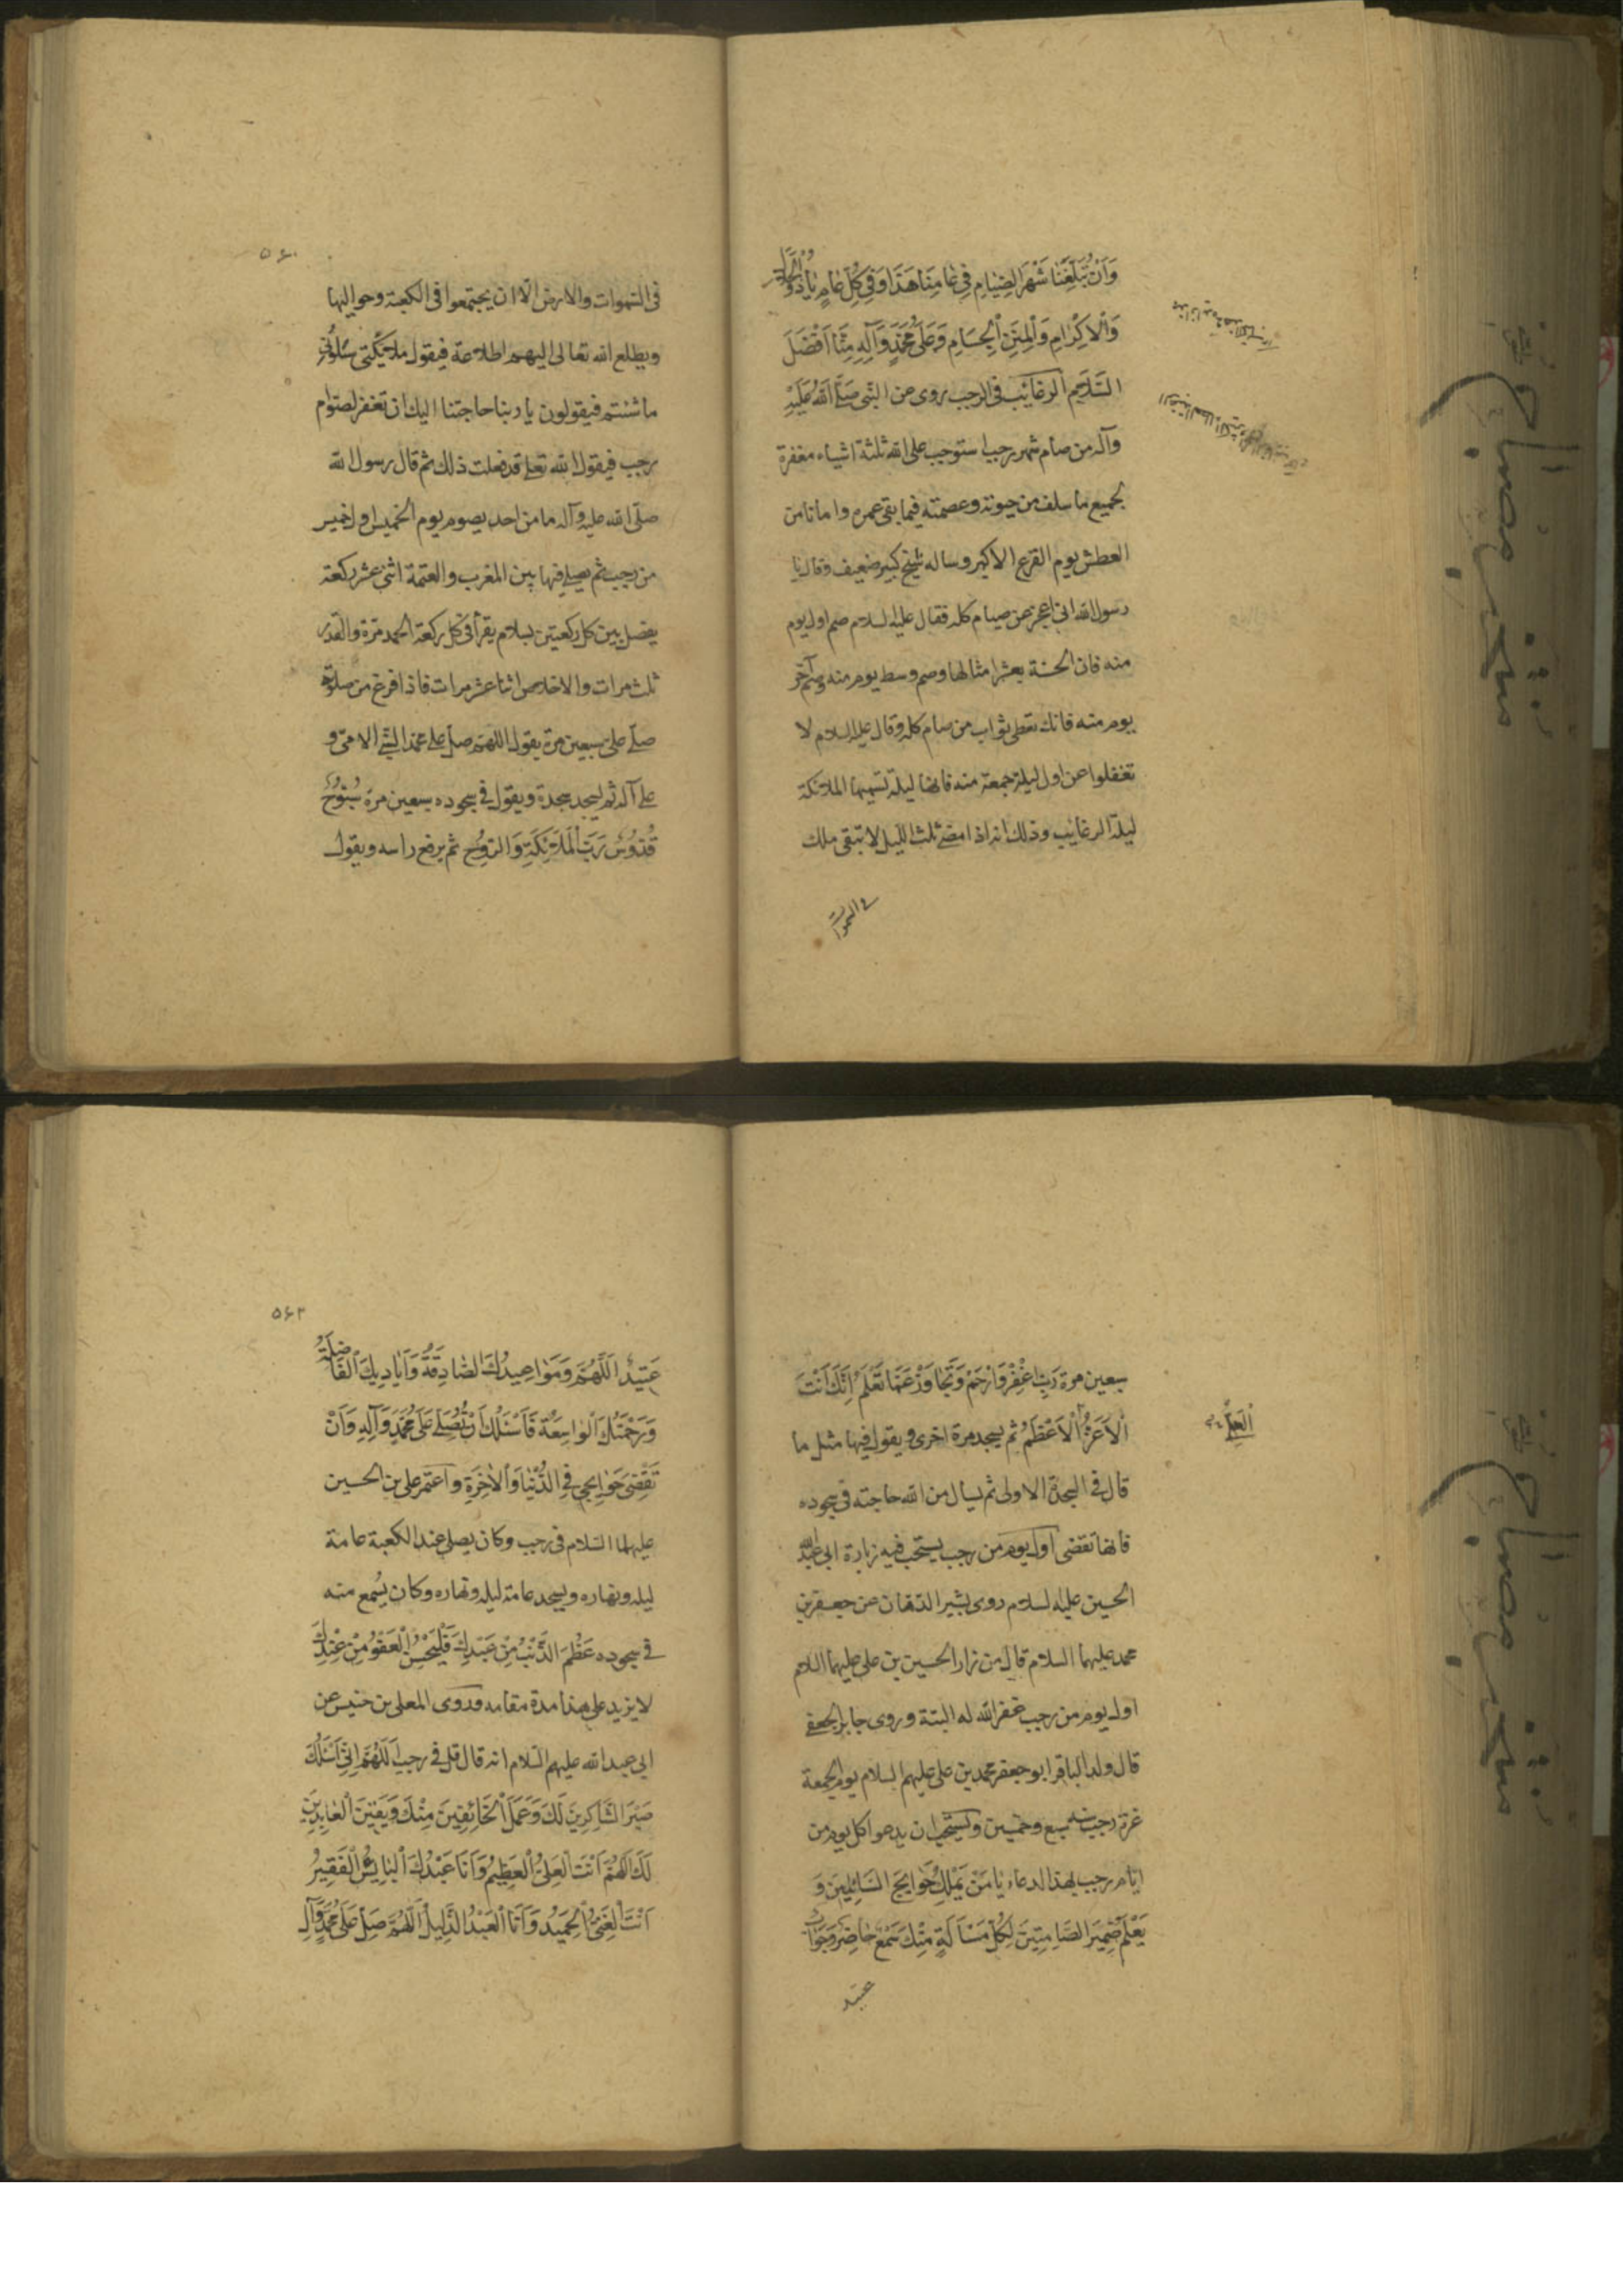 وَاَنْ تُبَلِّغَنَا شَهْرَ الصِّيَامِ فِي عَامِنَا هَذَا وَفِي كُلِّ عَامٍ يَا ذَا الْجَلَالِ
وَالْاِكْرَامِ وَالْمِنَنِ الْجِسَامِ وَعَلَى مُحَمَّدٍ وَآلِهِ مِنَّا اَفْضَلُ
السَّلَامِ الرغائب فى الرجب روى عن النبى صَلَّى اللهُ عَلَيْهِ
وآله من صام شهر رجب استوجب على الله ثلثة اشياء مغفرة
لجميع ما سلف من ذنوبه وعصمته فيما بقى عمره وامانا من
العطش يوم الفزع الاكبر وساله شيخ كبير ضعيف وقال يا
رسول الله انى اعجز عن صيام كله فقال عليه السلام صم اول يوم
منه فان الحسنة بعشر امثالها وصم وسط يوم منه وصم آخر
يوم منه فانك تعطى ثواب من صام كله وقال عليه السلام لا
تغفلوا عن اول ليلة جمعة منه فانها ليلة تسميها الملائكة
ليلة الرغايب وذلك انه اذا مضى ثلث الليل لا تبقى ملك
فى السموات
۵۶۰
فى السموات والارض الّا ان يجتمعوا فى الكعبة وحواليها
ويطلع الله تعالى اليهم اطلاعة فيقول ملائكتى سَلُونِي
ما شئتم فيقولون يا ربنا حاجتنا اليك ان تغفر لصوّام
رجب فيقول الله تعالى قد فعلت ذلك ثم قال رسول الله
صلّى الله عليه وآله ما من احد يصوم يوم الخميس اول خميس
من رجب ثم يصلى فيها بين المغرب والعتمة اثنى عشر ركعة
يفصل بين كل ركعتين بسلام يقرأ فى كل ركعة الحمد مرّة والقدر
ثلث مرات والاخلاص اثنا عشر مرات فاذا فرغ من صلوته
صلّى علىّ سبعين مرة يقول اللهمّ صلّ على محمد النبى الامى و
على آله ثم يسجد سجدة ويقول فى سجوده سبعين مرة سُبُّوحٌ
قُدُّوسٌ رَبُّ الْمَلَائِكَةِ وَالرُّوحِ ثم يرفع راسه ويقول
سبعين مرة رَبِّ اغْفِرْ وَارْحَمْ وَتَجَاوَزْ عَمَّا تَعْلَمُ اِنَّكَ اَنْتَ
الْاَعَزُّ الْاَعْظَمُ ثم يسجد مرة اخرى ويقول فيها مثل ما
قال فى السجدة الاولى ثم يسال من الله حاجته فى سجوده
فانها تقضى اول يوم من رجب يستحب فيه زيارة ابى عبد الله
الحسين عليه السلام روى بشير الدهان عن جعفر بن
محمد عليهما السلام قال من زار الحسين بن على عليهما السلام
اول يوم من رجب غفر الله له البتة وروى جابر الجعفى
قال ولد الباقر ابو جعفر محمد بن على عليهم السلام يوم الجمعة
غرة رجب سنة سبع وخمسين ويستحب ان يدعو كل يوم من
ايام رجب بهذا الدعاء يَا مَنْ يَمْلِكُ حَوَايِجَ السَّائِلِينَ وَ
يَعْلَمُ ضَمِيرَ الصَّامِتِينَ لِكُلِّ مَسْاَلَةٍ مِنْكَ سَمْعٌ حَاضِرٌ وَجَوَابٌ
عتيد
۵۶۲
عَتِيدٌ اَللَّهُمَّ وَمَوَاعِيدُكَ الصَّادِقَةُ وَاَيَادِيكَ الْفَاضِلَةُ
وَرَحْمَتُكَ الْوَاسِعَةُ فَاَسْئَلُكَ اَنْ تُصَلِّيَ عَلَى مُحَمَّدٍ وَآلِهِ وَاَنْ
تَقْضِيَ حَوَايِجِي فِي الدُّنْيَا وَالْآخِرَةِ واعتمر على بن الحسين
عليهما السلام فى رجب وكان يصلى عند الكعبة عامة
ليله ونهاره ويسجد عامة ليله ونهاره وكان يُسمع منه
فى سجوده عَظُمَ الذَّنْبُ مِنْ عَبْدِكَ فَلْيَحْسُنِ الْعَفْوُ مِنْ عِنْدِكَ
لا يزيد على هذا مدة مقامه وروى المعلى بن خنيس عن
ابى عبد الله عليهم السلام انه قال قل فى رجب اَللَّهُمَّ اِنِّي اَسْئَلُكَ
صَبْرَ الشَّاكِرِينَ لَكَ وَعَمَلَ الْخَائِفِينَ مِنْكَ وَيَقِينَ الْعَابِدِينَ
لَكَ اَللَّهُمَّ اَنْتَ الْعَلِيُّ الْعَظِيمُ وَاَنَا عَبْدُكَ الْبَائِسُ الْفَقِيرُ
اَنْتَ الْغَنِيُّ الْحَمِيدُ وَاَنَا الْعَبْدُ الذَّلِيلُ اَللَّهُمَّ صَلِّ عَلَى مُحَمَّدٍ وَآلِهِ